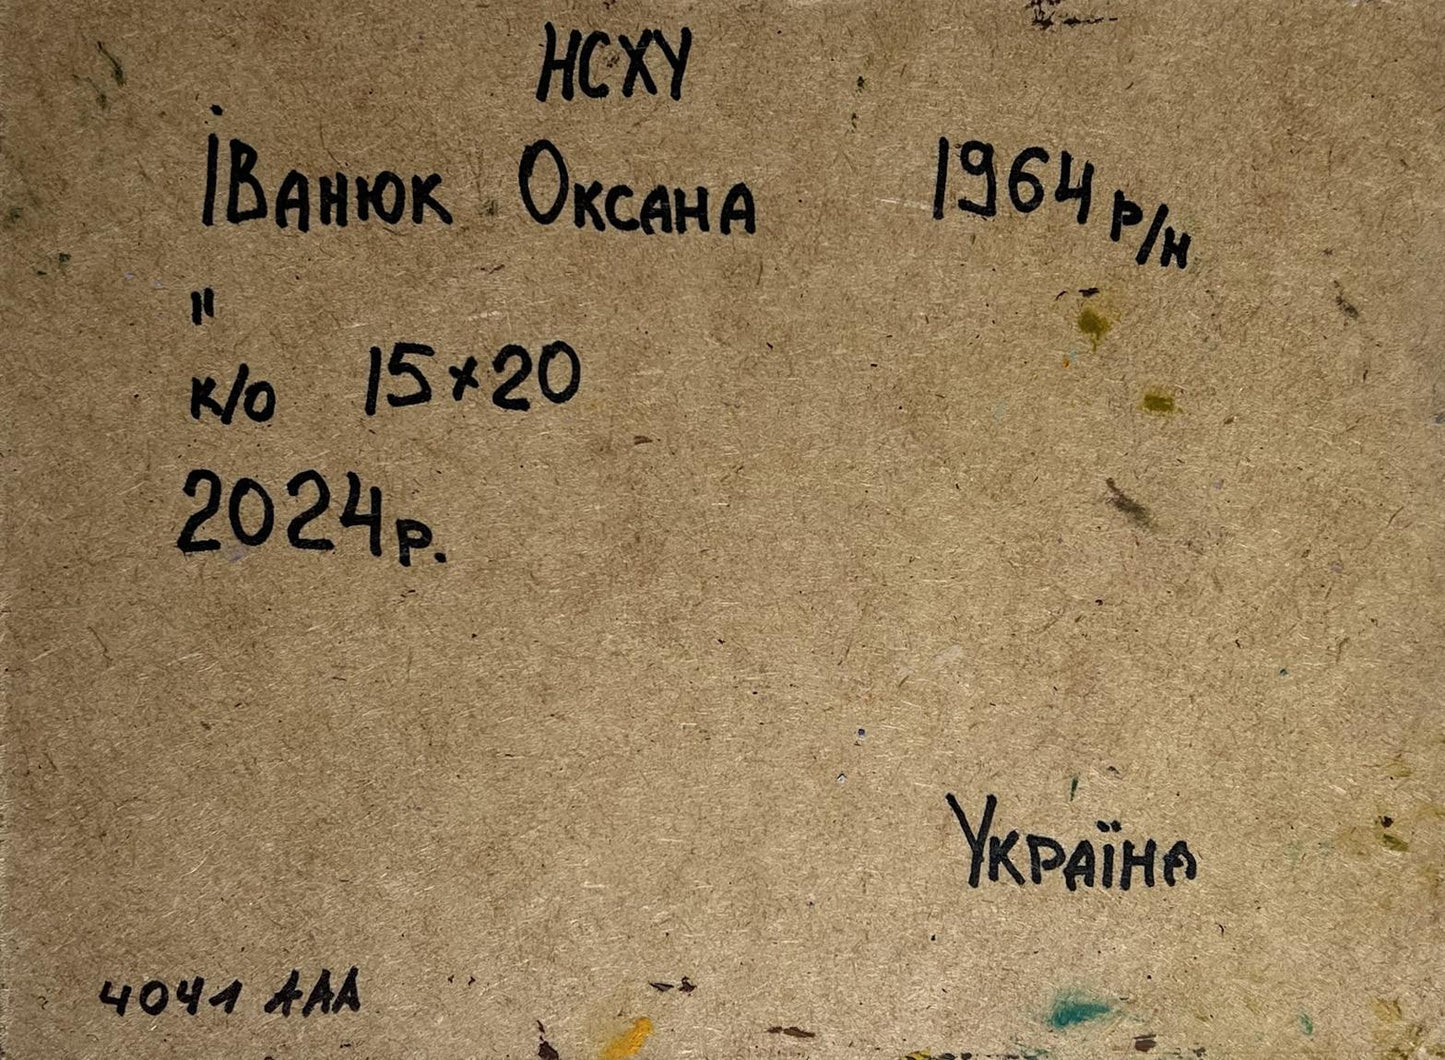 НСХУ
Іванюк Оксана 1964 р/н
"
к/о 15×20
2024 р.
Україна
4041 AAA